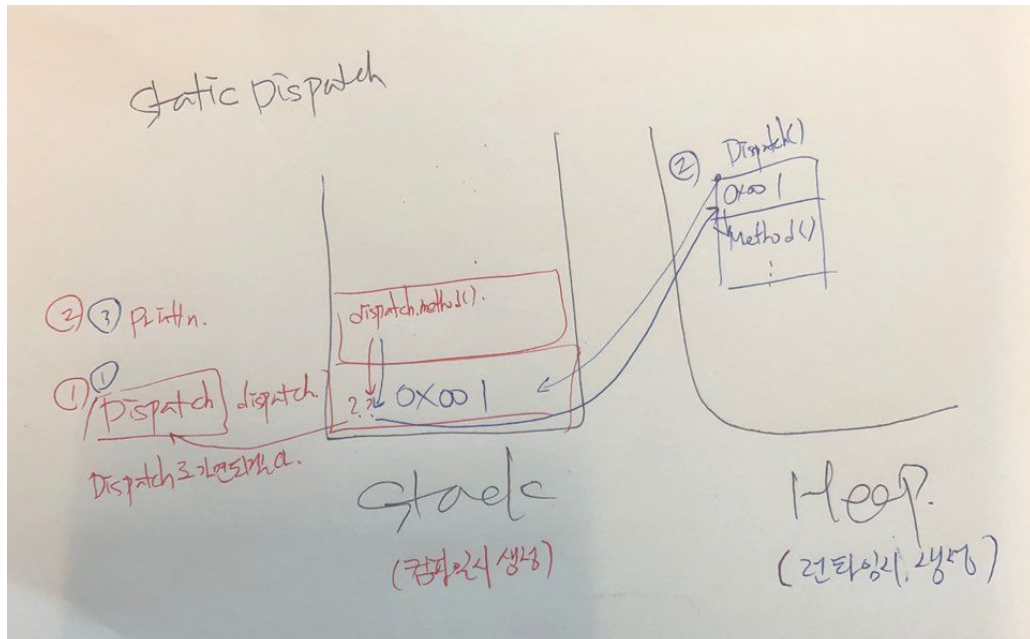 Static Dispatch
② Dispatch()
0x001
Method()
⋮
dispatch.method().
② ③ println.
① ①
Dispatch dispatch.
?.? 0x001
Dispatch로 가면되겠다.
Stack
(컴파일시 생성)
Heap.
(런타임시. 생성)